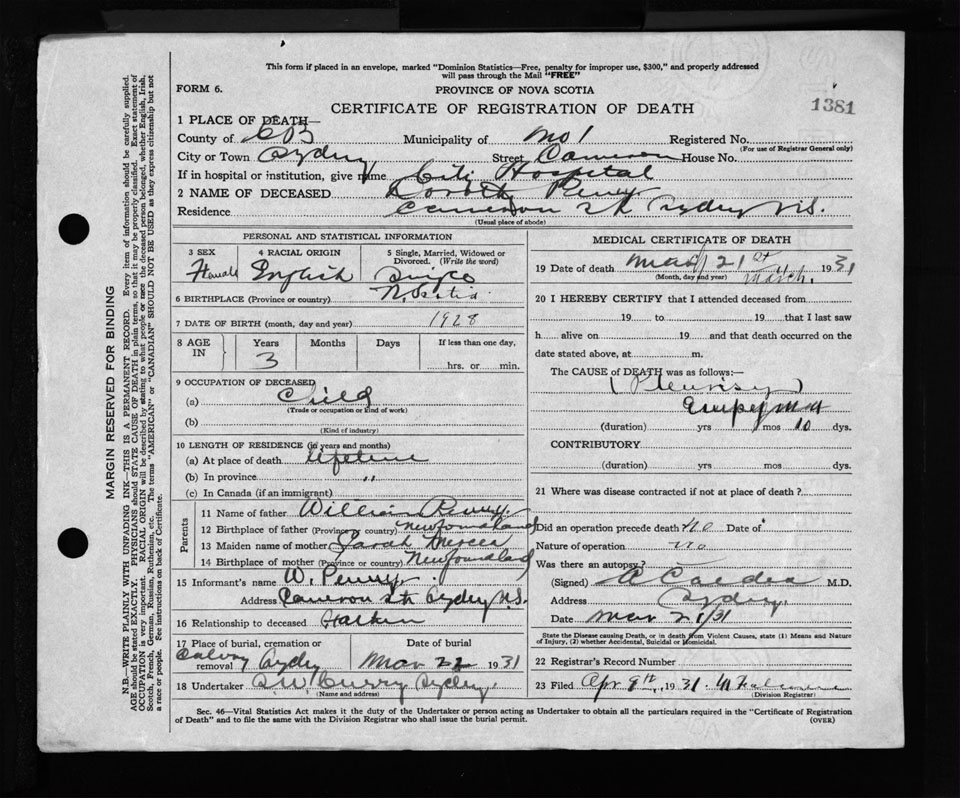 This form if placed in an envelope, marked "Dominion Statistics—Free, penalty for improper use, $300," and properly addressed
will pass through the Mail "FREE"
FORM 6.
PROVINCE OF NOVA SCOTIA
CERTIFICATE OF REGISTRATION OF DEATH
1381
1 PLACE OF DEATH—
County of C B Municipality of No 1 Registered No.
(For use of Registrar General only)
City or Town Sydney Street Cameron House No.
If in hospital or institution, give name City Hospital
2 NAME OF DECEASED Dorothy Penney
Residence Cameron St Sydney N.S.
(Usual place of abode)
PERSONAL AND STATISTICAL INFORMATION
3 SEX 4 RACIAL ORIGIN 5 Single, Married, Widowed or Divorced. (Write the word)
Female English Single
6 BIRTHPLACE (Province or country) N. Scotia
7 DATE OF BIRTH (month, day and year) 1928
8 AGE IN Years Months Days If less than one day,
3 hrs. or min.
9 OCCUPATION OF DECEASED
(a) Child
(Trade or occupation or kind of work)
(b)
(Kind of industry)
10 LENGTH OF RESIDENCE (in years and months)
(a) At place of death lifetime
(b) In province "
(c) In Canada (if an immigrant)
Parents
11 Name of father William Penney
12 Birthplace of father (Province or country) Newfoundland
13 Maiden name of mother Sarah Mercer
14 Birthplace of mother (Province or country) Newfoundland
15 Informant's name W. Penney
Address Cameron St Sydney N.S.
16 Relationship to deceased Father
17 Place of burial, cremation or removal Date of burial
Calvary Sydney Mar 22 1931
18 Undertaker Curry Sydney
(Name and address)
MEDICAL CERTIFICATE OF DEATH
19 Date of death 21st March. 1931
(Month, day and year)
20 I HEREBY CERTIFY that I attended deceased from
19 to 19 that I last saw
h alive on 19 and that death occurred on the
date stated above, at m.
The CAUSE of DEATH was as follows:—
(Pleurisy)
Empyema
(duration) yrs mos 10 dys.
CONTRIBUTORY
(duration) yrs mos dys.
21 Where was disease contracted if not at place of death?
Did an operation precede death? No Date of
Nature of operation
Was there an autopsy? No
(Signed) M.D.
Address Sydney
Date Mar 21/31
State the Disease causing Death, or in death from Violent Causes, state (1) Means and Nature
of Injury, (2) whether Accidental, Suicidal or Homicidal.
22 Registrar's Record Number
23 Filed Apr 9th, 1931.
(Division Registrar)
Sec. 46—Vital Statistics Act makes it the duty of the Undertaker or person acting as Undertaker to obtain all the particulars required in the "Certificate of Registration
of Death" and to file the same with the Division Registrar who shall issue the burial permit.
(OVER)
MARGIN RESERVED FOR BINDING
N.B.—WRITE PLAINLY WITH UNFADING INK—THIS IS A PERMANENT RECORD. Every item of information should be carefully supplied.
AGE should be stated EXACTLY. PHYSICIANS should STATE CAUSE OF DEATH in plain terms, so that it may be properly classified. Exact statement of
OCCUPATION is very important. RACIAL ORIGIN will be described by stating what people or race the deceased person belonged, whether English, Irish,
Scotch, French, German, Russian, Ruthenian, etc. The terms "AMERICAN" or "CANADIAN" SHOULD NOT BE USED as they express citizenship but not
a race or people. See instructions on back of Certificate.